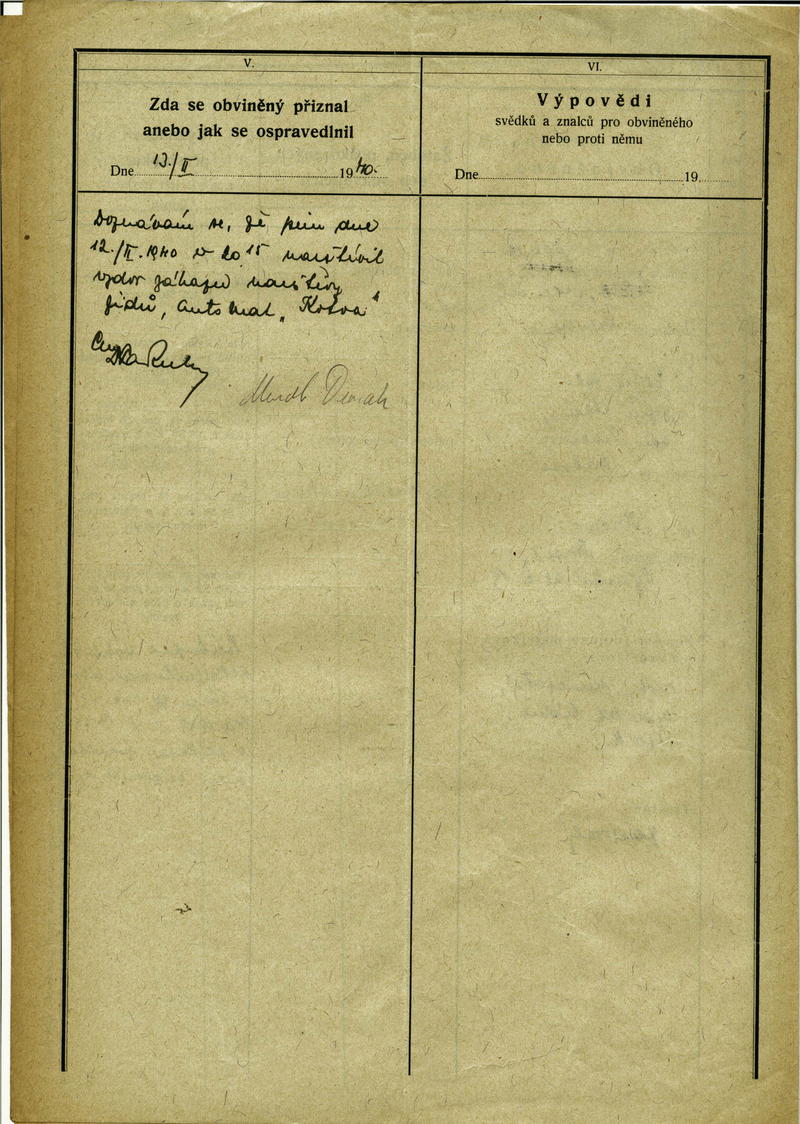 V.
Zda se obviněný přiznal
anebo jak se ospravedlnil
Dne 13./II 1940.
Doznávám se, že jsem dne
12./II. 1940 v 20 15 navštívil
vzdor zákazu návštěvy
židů, automat „Koruna"
VI.
Výpovědi
svědků a znalců pro obviněného
nebo proti němu
Dne 19